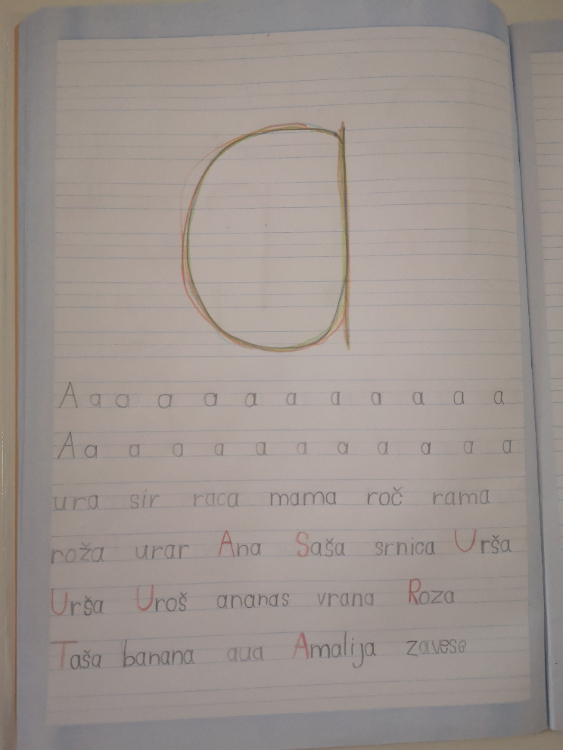 a
A a a a a a a a a a a a
A a a a a a a a a a a a
ura sir raca mama roč rama
roža urar Ana Saša srnica Urša
Urša Uroš ananas vrana Roza
Taša banana aua Amalija zavese